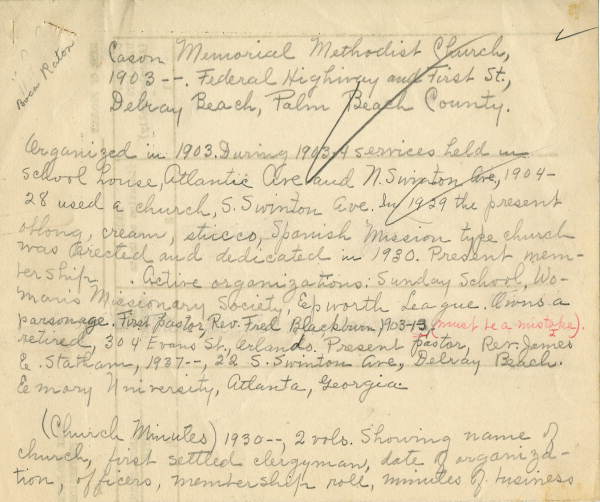 Boca Raton
Cason Memorial Methodist Church,
1903--. Federal Highway and First St.,
Delray Beach, Palm Beach County.
Organized in 1903. During 1903-4 services held in
school house, Atlantic Ave and N. Swinton Ave, 1904-
28 used a church, S. Swinton Ave. In 1929 the present
oblong, cream, stucco, Spanish Mission type church
was erected and dedicated in 1930. Present mem-
bership . Active organizations: Sunday School, Wo-
mans Missionary Society, Epworth League. Owns a
parsonage. First pastor, Rev. Fred Blackburn 1903-13, (must be a mistake).
retired, 304 Evans St., Orlando. Present pastor, Rev. James
E. Statham, 1937--, 22 S. Swinton Ave, Delray Beach.
Emory University, Atlanta, Georgia.
(Church Minutes) 1930--, 2 vols. Showing name of
church, first settled clergyman, date of organiza-
tion, officers, membership roll, minutes of business